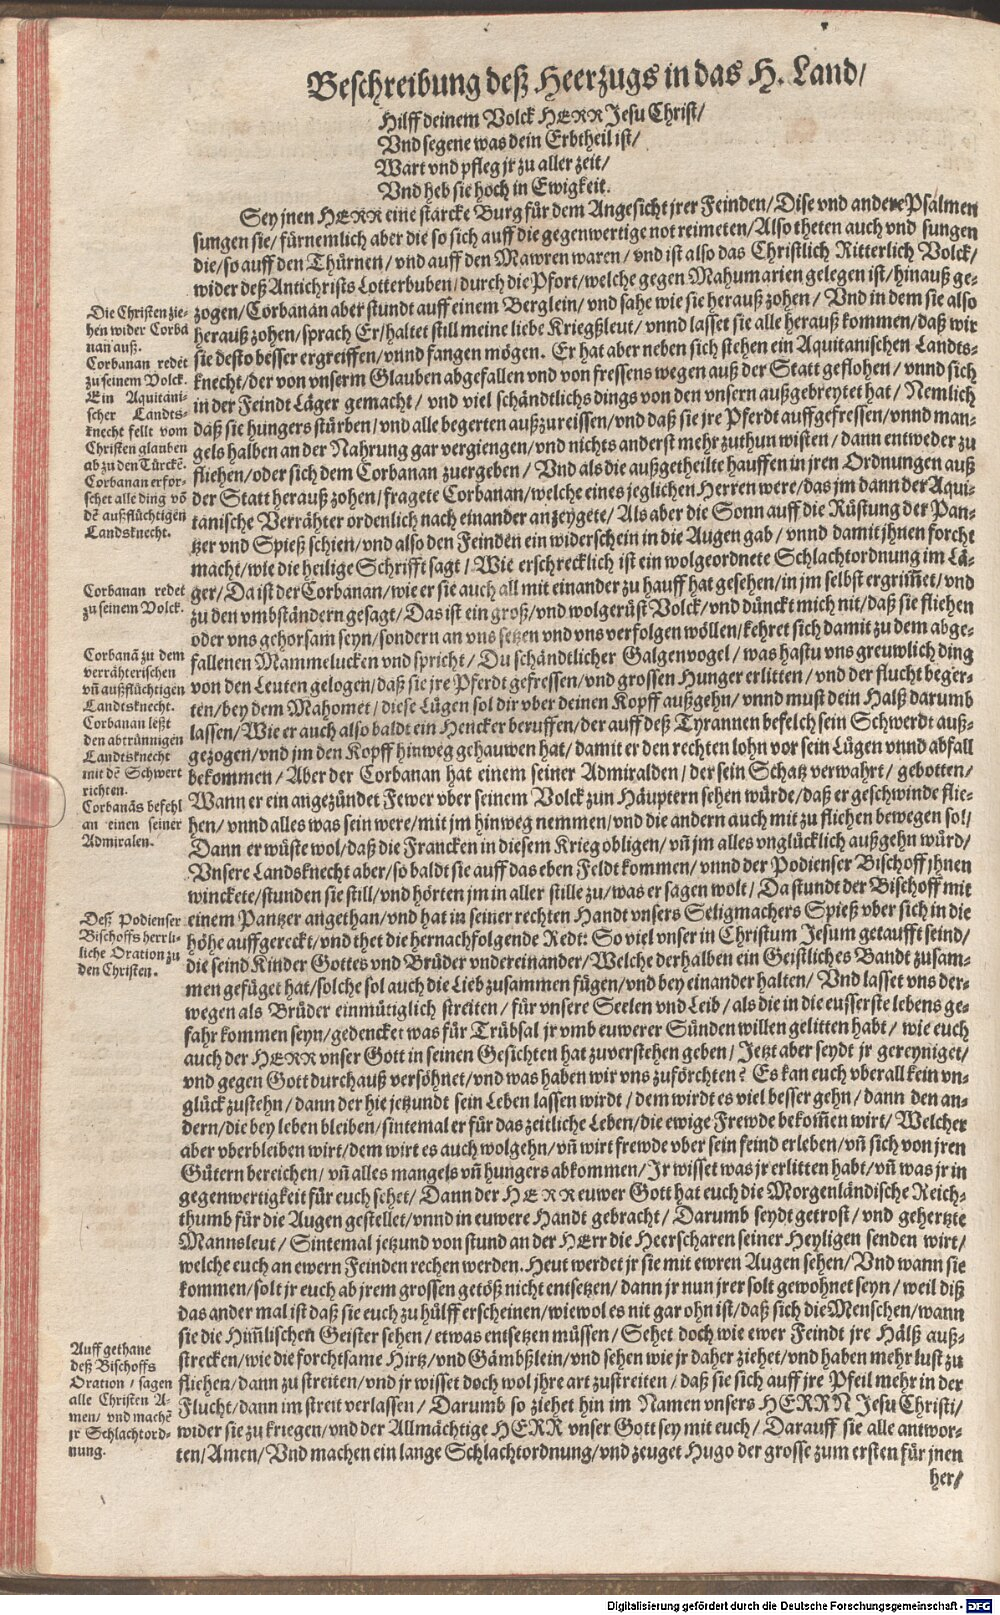 Beschreibung deß Heerzugs in das H. Land/
Hilff deinem Volck HERR Jesu Christ/
Vnd segene was dein Erbtheil ist/
Wart vnd pfleg jr zu aller zeit/
Vnd heb sie hoch in Ewigkeit.
Sey jnen HERR eine starcke Burg für dem Angesicht jrer Feinden/ Dise vnd andere Psalmen
sungen sie/ fürnemlich aber die so sich auff die gegenwertige not reimeten/ Also theten auch vnd sungen
die/ so auff den Thürnen/ vnd auff den Mawren waren/ vnd ist also das Christlich Ritterlich Volck/
wider deß Antichrists Lotterbuben/ durch die Pfort/ welche gegen Mahumarien gelegen ist/ hinauß ge-
zogen/ Corbanan aber stundt auff einem Berglein/ vnd sahe wie sie herauß zohen/ Vnd in dem sie also
herauß zohen/ sprach Er/ haltet still meine liebe Kriegßleut/ vnnd lasset sie alle herauß kommen/ daß wir
sie desto besser ergreiffen/ vnnd fangen mögen. Er hat aber neben sich stehen ein Aquitanischen Landts-
knecht/ der von vnserm Glauben abgefallen vnd von fressens wegen auß der Statt geflohen/ vnnd sich
in der Feindt Läger gemacht/ vnd viel schändtlichs dings von den vnsern außgebreytet hat/ Nemlich
daß sie hungers stürben/ vnd alle begerten außzureissen/ vnd daß sie jre Pferdt auffgefressen/ vnnd man-
gels halben an der Nahrung gar vergiengen/ vnd nichts anderst mehr zuthun wisten/ dann entweder zu
fliehen/ oder sich dem Corbanan zuergeben/ Vnd als die außgetheilte hauffen in jren Ordnungen auß
der Statt herauß zohen/ fragete Corbanan/ welche eines jeglichen Herren were/ das jm dann der Aqui-
tanische Verrähter ordenlich nach einander anzeygete/ Als aber die Sonn auff die Rüstung der Pan-
tzer vnd Spieß schien/ vnd also den Feinden ein widerschein in die Augen gab/ vnnd damit jhnen forcht
macht/ wie die heilige Schrifft sagt/ Wie erschrecklich ist ein wolgeordnete Schlachtordnung im Lä-
ger/ Da ist der Corbanan/ wie er sie auch all mit einander zu hauff hat gesehen/ in jm selbst ergrim̃et/ vnd
zu den vmbständern gesagt/ Das ist ein groß/ vnd wolgerüst Volck/ vnd dünckt mich nit/ daß sie fliehen
oder vns gehorsam seyn/ sondern an vns setzen vnd vns verfolgen wöllen/ kehret sich damit zu dem abge-
fallenen Mammelucken vnd spricht/ Du schändtlicher Galgenvogel/ was hastu vns greuwlich ding
von den Leuten gelogen/ daß sie jre Pferdt gefressen/ vnd grossen Hunger erlitten/ vnd der flucht beger-
ten/ bey dem Mahomet/ diese Lügen sol dir vber deinen Kopff außgehn/ vnnd must dein Halß darumb
lassen/ Wie er auch also baldt ein Hencker beruffen/ der auff deß Tyrannen befelch sein Schwerdt auß-
gezogen/ vnd jm den Kopff hinweg gehauwen hat/ damit er den rechten lohn vor sein Lügen vnnd abfall
bekommen/ Aber der Corbanan hat einem seiner Admiralden/ der sein Schatz verwahrt/ gebotten/
Wann er ein angezündet Fewer vber seinem Volck zun Häuptern sehen würde/ daß er geschwinde flie-
hen/ vnnd alles was sein were/ mit jm hinweg nemmen/ vnd die andern auch mit zu fliehen bewegen sol/
Dann er wüste wol/ daß die Francken in diesem Krieg obligen/ vñ jm alles vnglücklich außgehn würd/
Vnsere Landsknecht aber/ so baldt sie auff das eben Feldt kommen/ vnnd der Podienser Bischoff jhnen
winckete/ stunden sie still/ vnd hörten jm in aller stille zu/ was er sagen wolt/ Da stundt der Bischoff mit
einem Pantzer angethan/ vnd hat in seiner rechten Handt vnsers Seligmachers Spieß vber sich in die
höhe auffgereckt/ vnd thet die hernachfolgende Redt: So viel vnser in Christum Jesum getaufft seind/
die seind Kinder Gottes vnd Brüder vndereinander/ Welche derhalben ein Geistliches Bandt zusam-
men gefüget hat/ solche sol auch die Lieb zusammen fügen/ vnd bey einander halten/ Vnd lasset vns der-
wegen als Brüder einmütiglich streiten/ für vnsere Seelen vnd Leib/ als die in die eusserste lebens ge-
fahr kommen seyn/ gedencket was für Trübsal jr vmb euwerer Sünden willen gelitten habt/ wie euch
auch der HERR vnser Gott in seinen Gesichten hat zuverstehen geben/ Jetzt aber seydt jr gereyniget/
vnd gegen Gott durchauß versöhnet/ vnd was haben wir vns zuförchten? Es kan euch vberall kein vn-
glück zustehn/ dann der hie jetzundt sein Leben lassen wirdt/ dem wirdt es viel besser gehn/ dann den an-
dern/ die bey leben bleiben/ sintemal er für das zeitliche Leben/ die ewige Frewde bekom̃en wirt/ Welcher
aber vberbleiben wirt/ dem wirt es auch wolgehn/ vñ wirt frewde vber sein feind erleben/ vñ sich von jren
Gütern bereichen/ vñ alles mangels vñ hungers abkommen/ Jr wisset was jr erlitten habt/ vñ was jr in
gegenwertigkeit für euch sehet/ Dann der HERR euwer Gott hat euch die Morgenländische Reich-
thumb für die Augen gestellet/ vnnd in euwere Handt gebracht/ Darumb seydt getrost/ vnd gehertzte
Mannsleut/ Sintemal jetzund von stund an der HErr die Heerscharen seiner Heyligen senden wirt/
welche euch an ewern Feinden rechen werden. Heut werdet jr sie mit ewren Augen sehen/ Vnd wann sie
kommen/ solt jr euch ab jrem grossen getöß nicht entsetzen/ dann jr nun jrer solt gewohnet seyn/ weil diß
das ander mal ist daß sie euch zu hülff erscheinen/ wiewol es nit gar ohn ist/ daß sich die Menschen/ wann
sie die Him̃lischen Geister sehen/ etwas entsetzen müssen/ Sehet doch wie ewer Feindt jre Hälß auß-
strecken/ wie die forchtsame Hirtz/ vnd Gämbßlein/ vnd sehen wie jr daher ziehet/ vnd haben mehr lust zu
fliehen/ dann zu streiten/ vnd jr wisset doch wol jhre art zustreiten/ daß sie sich auff jre Pfeil mehr in der
Flucht/ dann im streit verlassen/ Darumb so ziehet hin im Namen vnsers HERRN Jesu Christi/
wider sie zu kriegen/ vnd der Allmächtige HERR vnser Gott sey mit euch/ Darauff sie alle antwor-
ten/ Amen/ Vnd machen ein lange Schlachtordnung/ vnd zeuget Hugo der grosse zum ersten für jnen
her/
Die Christen zie-
hen wider Corba
nan auß.
Corbanan redet
zu seinem Volck.
Ein Aquitani-
scher Landts-
knecht fellt vom
Christen glauben
ab zu den Türckẽ.
Corbanan erfor-
schet alle ding võ
dẽ außflüchtigen
Landsknecht.
Corbanan redet
zu seinem Volck.
Corbanã zu dem
verrähterischen
vñ außflüchtigen
Landtsknecht.
Corbanan leßt
den abtrünnigen
Landtsknecht
mit dẽ Schwert
richten.
Corbanãs befehl
an einen seiner
Admiralen.
Deß Podienser
Bischoffs herrli-
liche Oration zu
den Christen.
Auff gethane
deß Bischoffs
Oration/ sagen
alle Christen A-
men/ vnd machẽ
jr Schlachtord-
nung.
Digitalisierung gefördert durch die Deutsche Forschungsgemeinschaft - DFG